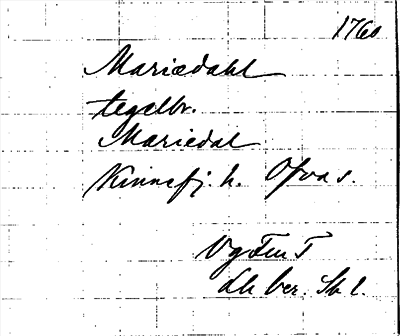 1760
Mariædahl
tegelbr.
Mariedal
Kinnefj. h. Ova s.
Vg
Lk ber. Sk l.